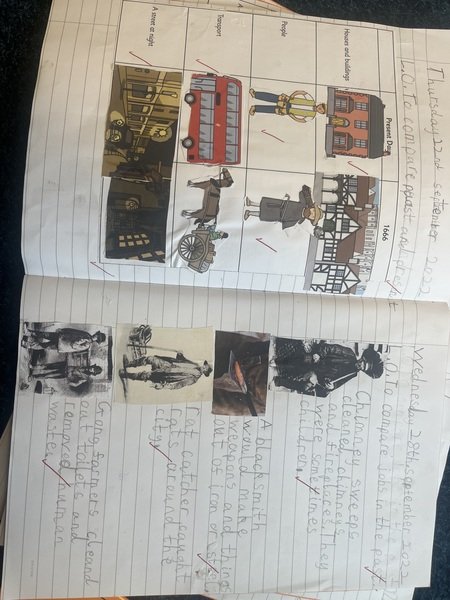 Thursday 22nd september 2022
L.O. To compare past and present
Present Day
1666
Houses and buildings
People
Transport
A street at night
Wednesday 28th september 2022
L.O To compare jobs in the past.
Chimney sweeps
cleaned chimneys
and fireplaces. They
were sometimes
children.
A blacksmith
would make
weapons and things
out of iron or steel
rat catcher caught
rats around the
city
Gong farmers cleand
out toilets and
removed human
waste.